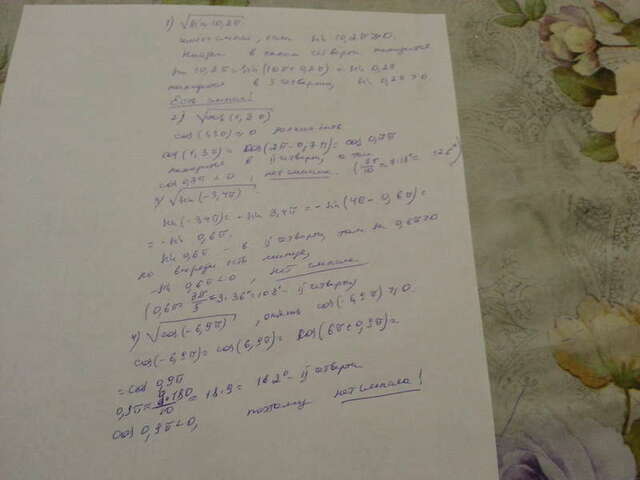 1) √sin 10,2π
имеет смысл, если sin 10,2π≥0.
в какой четверти находится
sin 10,2π = sin(10π+0,2π) = sin 0,2π
находится в 1 четверти, sin 0,2π > 0
Есть смысл!
2) √cos(1,3π)
cos(1,3π) ≥ 0
cos(1,3π) = cos(2π-0,7π) = cos 0,7π
находится в II четверти, а там
cos 0,7π < 0, нет смысла. (7π/10 = 7·18° = 126°)
3) √sin(-3,4π)
sin(-3,4π) = -sin 3,4π = -sin(4π-0,6π) =
= -sin 0,6π.
sin 0,6π - в II четверти, там sin 0,6π>0
но впереди есть минус,
-sin 0,6π<0, нет смысла
(0,6π = 3π/5 = 3·36° = 108° - II четверть)
4) √cos(-6,9π), опять cos(-6,9π) ≥ 0
cos(-6,9π) = cos(6,9π) = cos(6π+0,9π) =
= cos 0,9π
0,9π = 9·180/10 = 18·9 = 162° - II четверти
cos 0,9π<0, поэтому нет смысла!